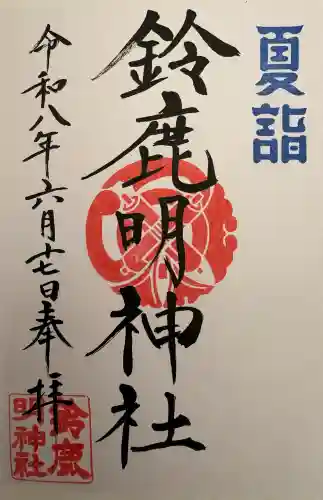 夏詣
鈴鹿明神社
令和八年六月十七日奉拝
鈴鹿
明神社